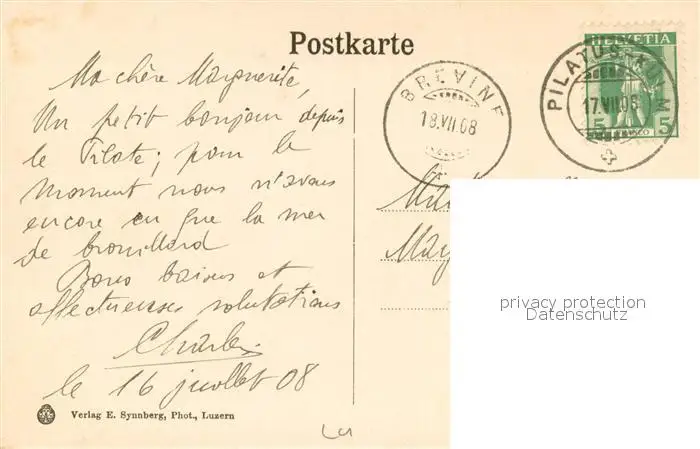 Postkarte
Ma chère Marguerite,
Un petit bonjour depuis
le Pilate; pour le
moment nous n'avons
encore eu que la mer
de brouillard
Bons baisers et
affectueuses salutations
Charles
le 16 juillet 08
Verlag E. Synnberg, Phot., Luzern
BREVINE
18.VII.08
PILATUS-KULM
17.VII.08
HELVETIA
5 5
FRANCO
privacy protection
Datenschutz